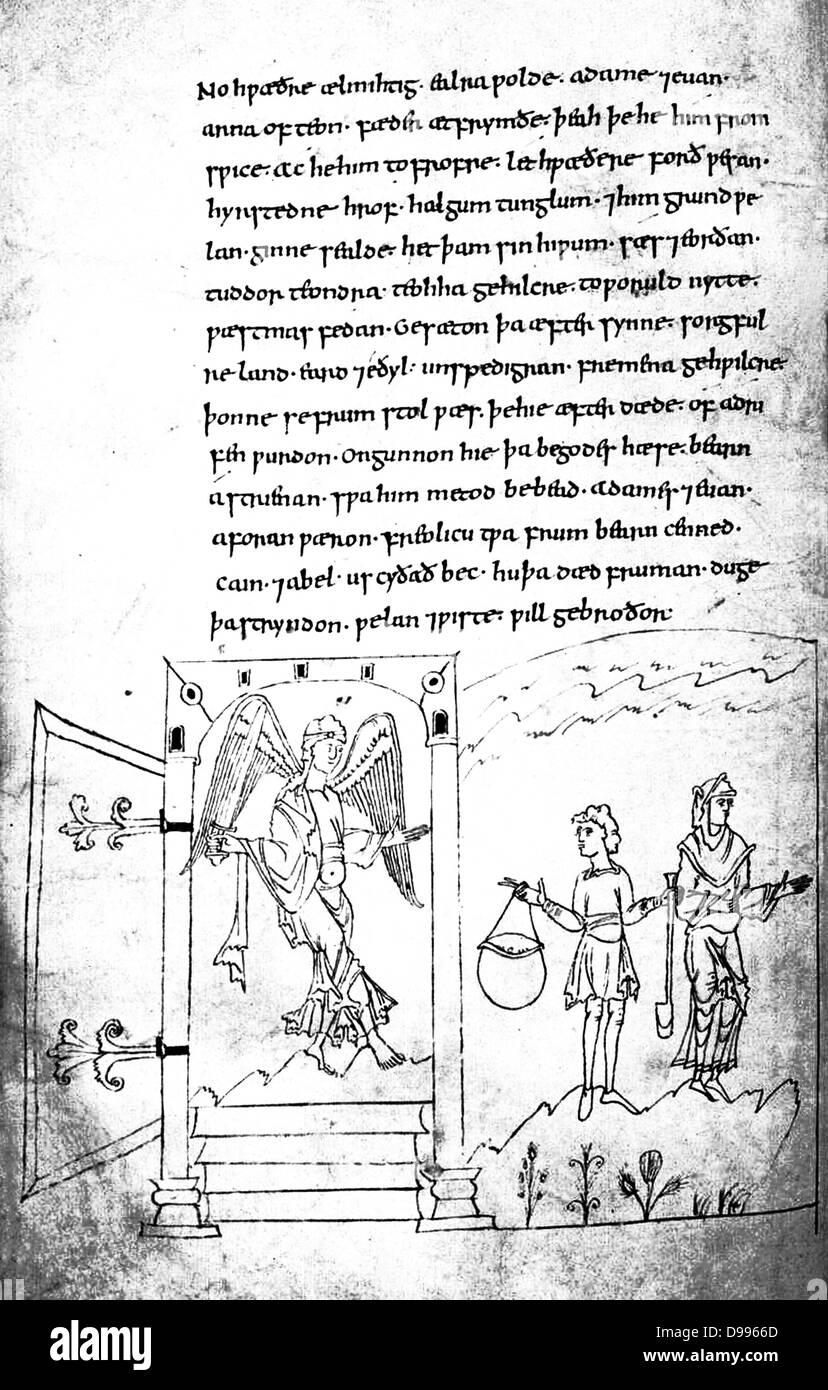 No hƿæðre ælmihtig· ealra ƿolde· adame ⁊ euan·
arna ofteon· fæder ætfrymðe· þeah þe he him from
sƿice· ac he him tofrofre· let hƿæðere forð ƿesan·
hyrstedne hrof· halgum tunglum· ⁊ him grund ƿe
lan· ginne sealde· het þam sin hiƿum· sæs ⁊ eorðan·
tuddor teondra· teohha gehƿilcre· to ƿoruld nytte·
ƿæstmas fedan· Gesæton þa æfter synne· sorgful
re land· eard ⁊ eðyl· unspedigran· fremena gehƿilcre·
þonne se frum stol ƿæs· þe hie æfter dæde· of adri
fen ƿurdon· Ongunnon hie þa be godes hæse· bearn
astrienan· sƿa him metod bebead· Adames ⁊ euan·
aforan ƿæron· freolicu tƿa frum bearn cenned·
cain· ⁊ abel· us cyðað bec· hu þa dæd fruman· duge
þa stryndon· ƿelan ⁊ ƿiste· ƿill gebroðor·
alamy
Image ID: D9966D
www.alamy.com